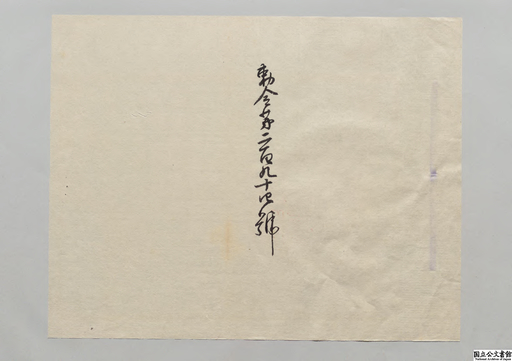 勅令第二百九十四號
国立公文書館
National Archives of Japan